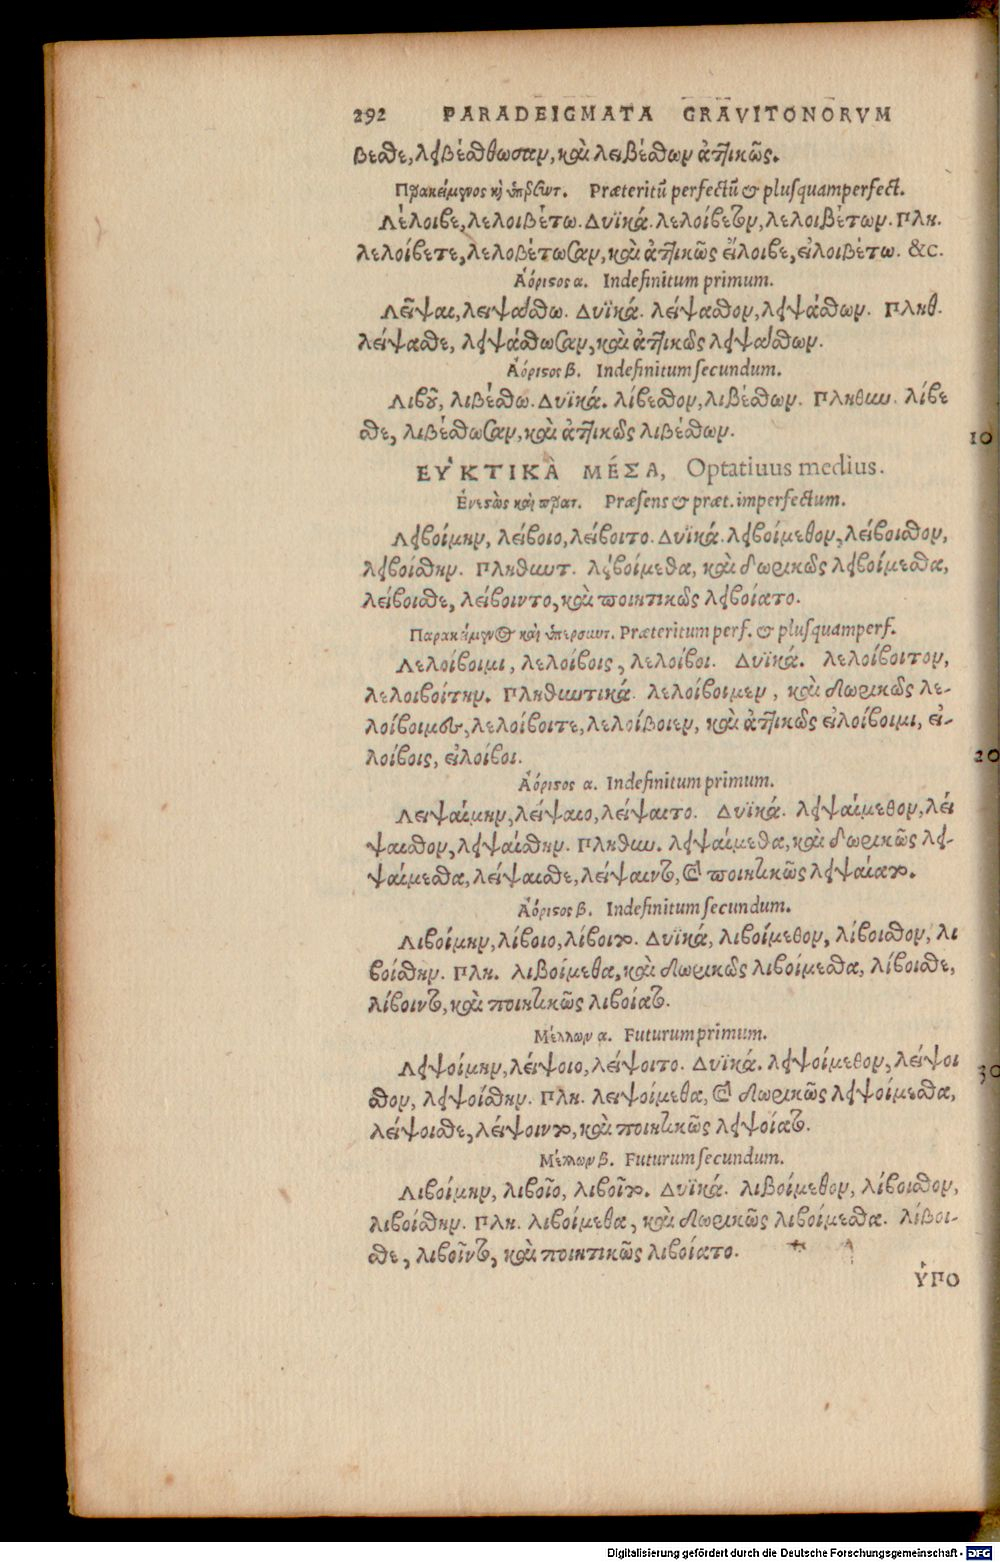 292 PARADEIGMATA GRAVITONORVM
βεσθε, λειβέσθωσαν, καὶ λειβέσθων ἀττικῶς.
Παρακείμενος κὴ ὑπερσωτ. Præteritũ perfectũ & plusquamperfect.
Λέλοιβε, λελοιβέτω. Δυϊκά. λελοίβετον, λελοιβέτων. Πλη.
λελοίβετε, λελοβέτωσαν, καὶ ἀττικῶς εἴλοιβε, εἰλοιβέτω. &c.
Ἀόριστος α. Indefinitum primum.
Λεῖψαι, λειψάσθω. Δυϊκά. λείψασθον, λειψάσθων. Πληθ.
λείψασθε, λειψάσθωσαν, καὶ ἀττικῶς λειψάσθων.
Ἀόριστος β. Indefinitum secundum.
Λιβοῦ, λιβέσθω. Δυϊκά. λίβεσθον, λιβέσθων. Πληθιω. λίβε
σθε, λιβέσθωσαν, καὶ ἀττικῶς λιβέσθων.
10
ΕΥ̓ΚΤΙΚᾺ ΜΈΣΑ, Optatiuus medius.
Ἐνεστὼς καὶ πρατ. Præsens & præt. imperfectum.
Λειβοίμην, λείβοιο, λείβοιτο. Δυϊκά. λειβοίμεθον, λείβοισθον,
λειβοίσθην. Πληθιωτ. λειβοίμεθα, καὶ δωρικῶς λειβοίμεσθα,
λείβοισθε, λείβοιντο, καὶ ποιητικῶς λειβοίατο.
Παρακείμενος καὶ ὑπερσιωτ. Præteritum perf. & plusquamperf.
Λελοίβοιμι, λελοίβοις, λελοίβοι. Δυϊκά. λελοίβοιτον,
λελοιβοίτην. Πληθιωτικά. λελοίβοιμεν, καὶ δωρικῶς λε-
λοίβοιμες, λελοίβοιτε, λελοίβοιεν, καὶ ἀττικῶς εἰλοίβοιμι, εἰ-
λοίβοις, εἰλοίβοι.
20
Ἀόριστος α. Indefinitum primum.
Λειψαίμην, λείψαιο, λείψαιτο. Δυϊκά. λειψαίμεθον, λεί
ψαισθον, λειψαίσθην. Πληθιω. λειψαίμεθα, καὶ δωρικῶς λει-
ψαίμεσθα, λείψαισθε, λείψαιντο, καὶ ποιητικῶς λειψαίατο.
Ἀόριστος β. Indefinitum secundum.
Λιβοίμην, λίβοιο, λίβοιτο. Δυϊκά, λιβοίμεθον, λίβοισθον, λι
βοίσθην. Πλη. λιβοίμεθα, καὶ δωρικῶς λιβοίμεσθα, λίβοισθε,
λίβοιντο, καὶ ποιητικῶς λιβοίατο.
Μέλλων α. Futurum primum.
Λειψοίμην, λείψοιο, λείψοιτο. Δυϊκά. λειψοίμεθον, λείψοι
30
σθον, λειψοίσθην. Πλη. λειψοίμεθα, καὶ δωρικῶς λειψοίμεσθα,
λείψοισθε, λείψοιντο, καὶ ποιητικῶς λειψοίατο.
Μέλλων β. Futurum secundum.
Λιβοίμην, λιβοῖο, λιβοῖτο. Δυϊκά. λιβοίμεθον, λίβοισθον,
λιβοίσθην. Πλη. λιβοίμεθα, καὶ δωρικῶς λιβοίμεσθα. λίβοι-
σθε, λιβοῖντο, καὶ ποιητικῶς λιβοίατο.
ὙΠΟ
Digitalisierung gefördert durch die Deutsche Forschungsgemeinschaft - DFG